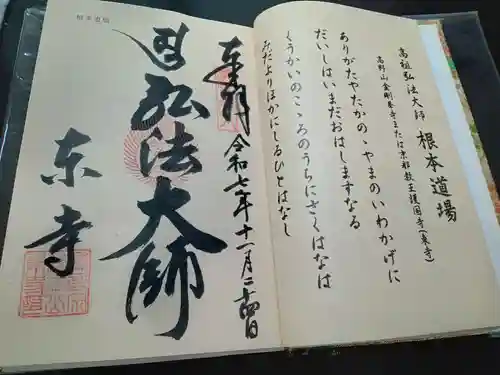 高祖弘法大師 根本道場
高野山金剛峯寺または京都教王護国寺(東寺)
ありがたやたかのゝやまのいわかげに
だいしはいまだおはしますなる
くうかいのこゝろのうちにさくはなは
みだよりほかにしるひとはなし
奉拝 令和七年十一月二十四日
弘法大師
東寺